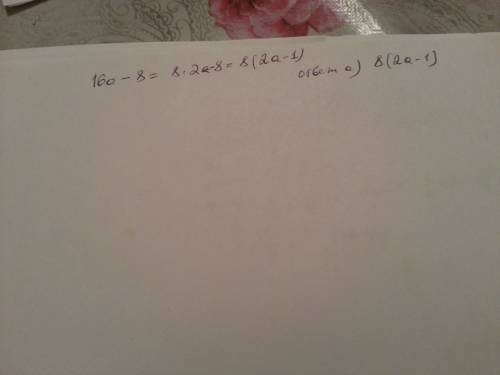 16a - 8 = 8·2a-8 = 8(2a-1) ответ а) 8(2a-1)